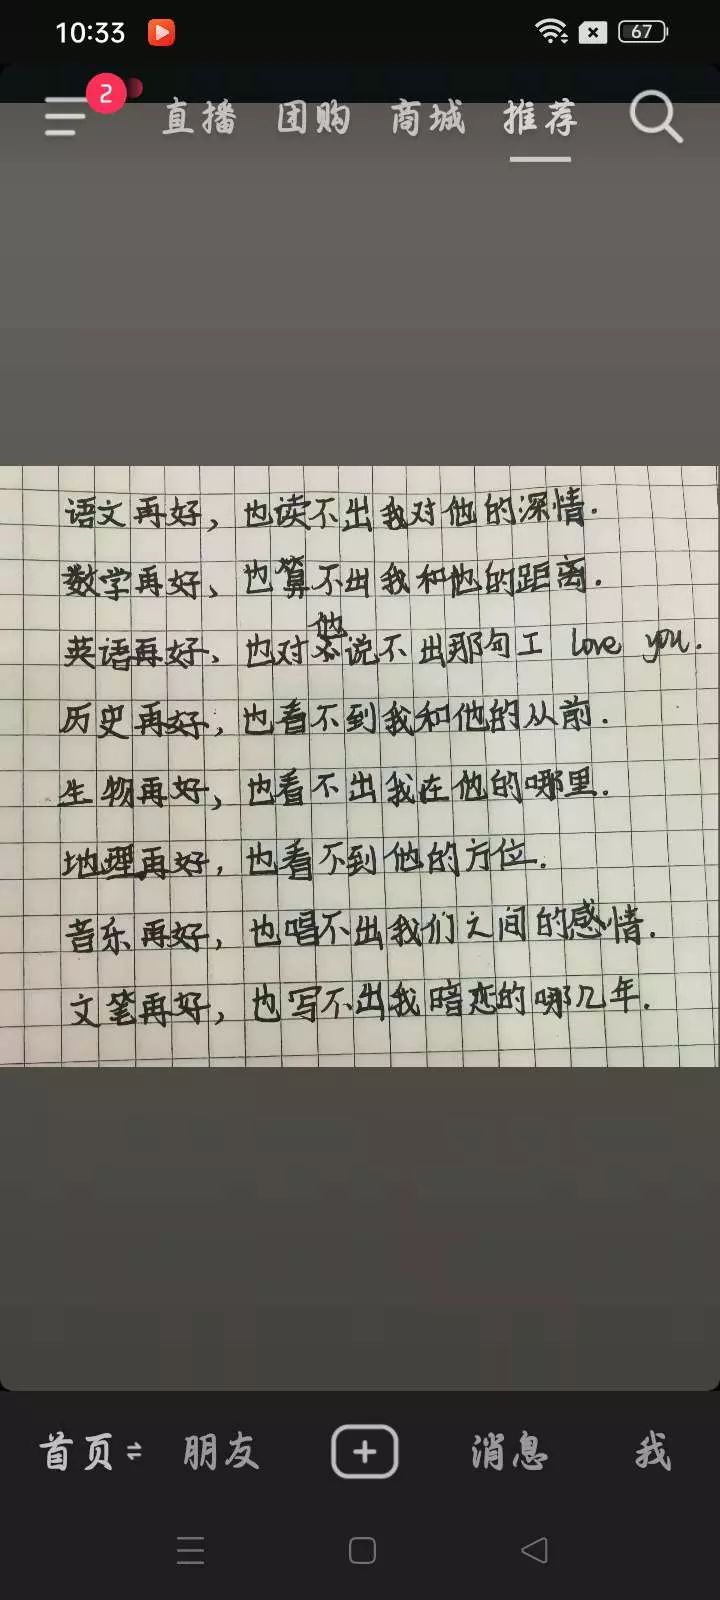 10:33
67
2
直播 团购 商城 推荐
语文再好，也读不出我对他的深情.
数学再好，也算不出我和他的距离.
他
英语再好，也对说不出那句I love you.
历史再好，也看不到我和他的从前.
生物再好，也看不出我在他的哪里.
地理再好，也看不到他的方位.
音乐再好，也唱不出我们之间的感情.
文笔再好，也写不出我暗恋的哪几年.
首页 朋友 消息 我